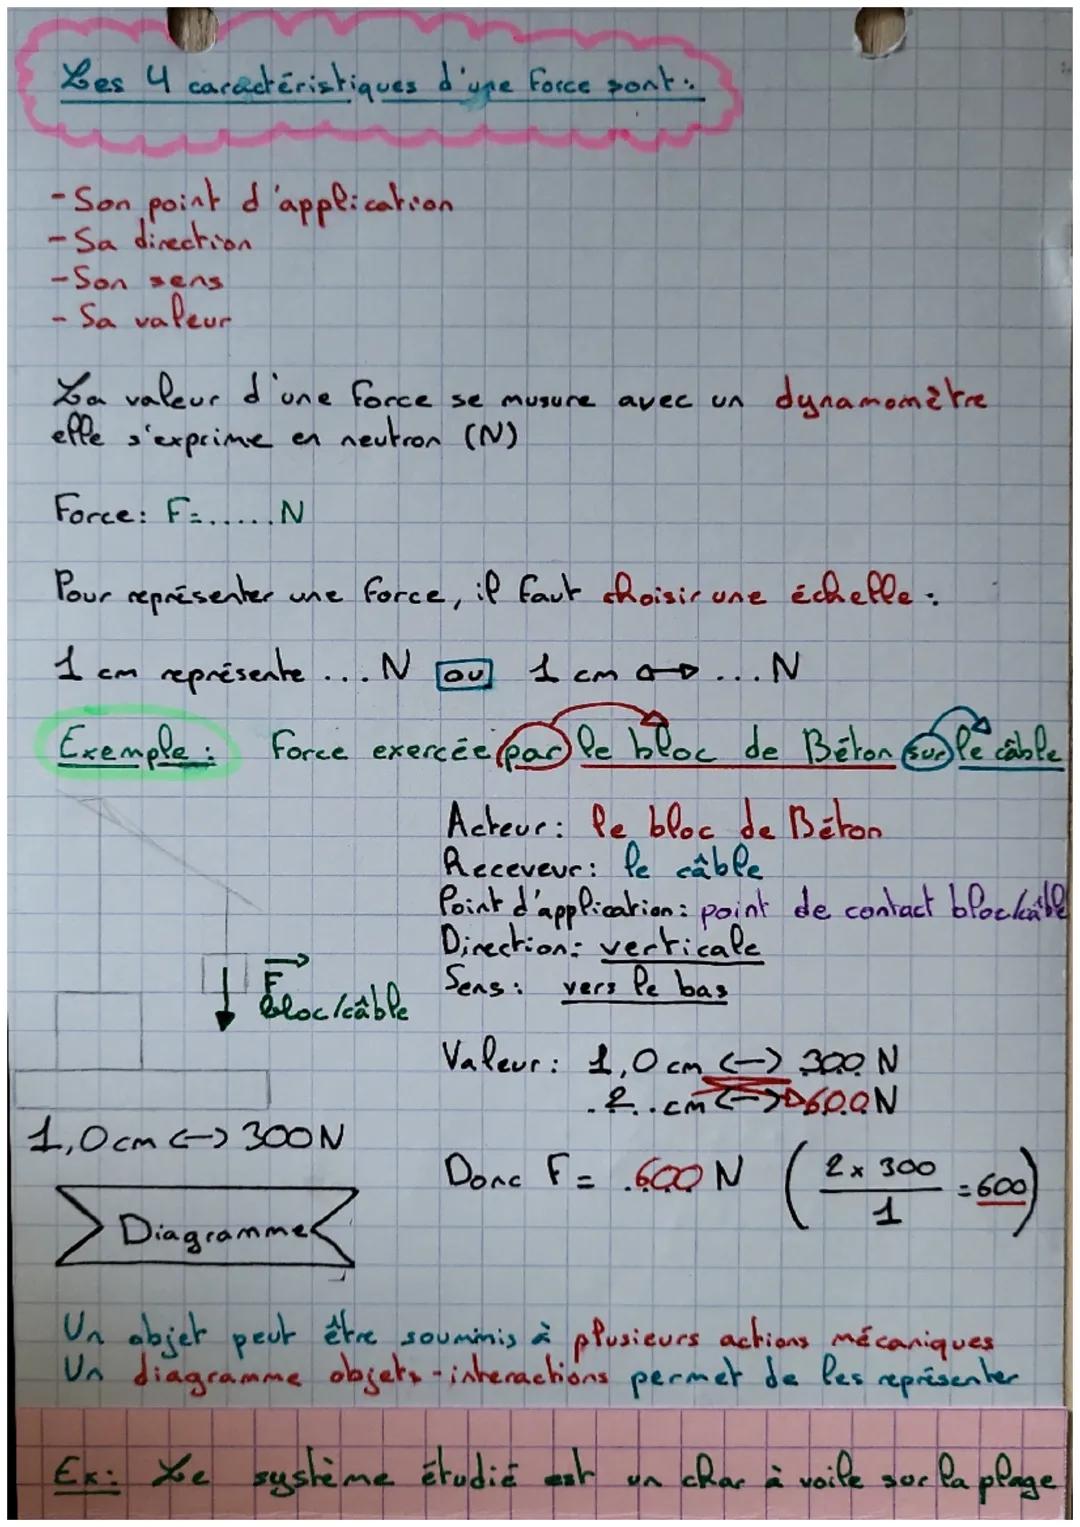 Les 4 caractéristiques d'une Force sont:
- Son point d'application
- Sa direction
- Son sens
- Sa valeur
La valeur d'une force se musure avec un dynamomètre
elle s'exprime en neutron (N)
Force: F=......N
Pour représenter une force, il faut choisir une échelle:
1 cm représente ... N ou 1 cm ↔ ... N
Exemple: Force exercée par le bloc de Béton sur le câble
Acteur: le bloc de Béton
Receveur: le câble
Point d'application: point de contact bloc/câble
Direction: verticale
Sens: vers le bas
F bloc/câble
Valeur: 1,0 cm <-> 300 N
.2..cm <-> 600 N
1,0 cm <-> 300 N
Donc F = .600 N (2 x 300 / 1 = 600)
Diagramme
Un objet peut être souminis à plusieurs actions mécaniques
Un diagramme objets-interactions permet de les représenter
Ex: Le système étudié est un char à voile sur la plage